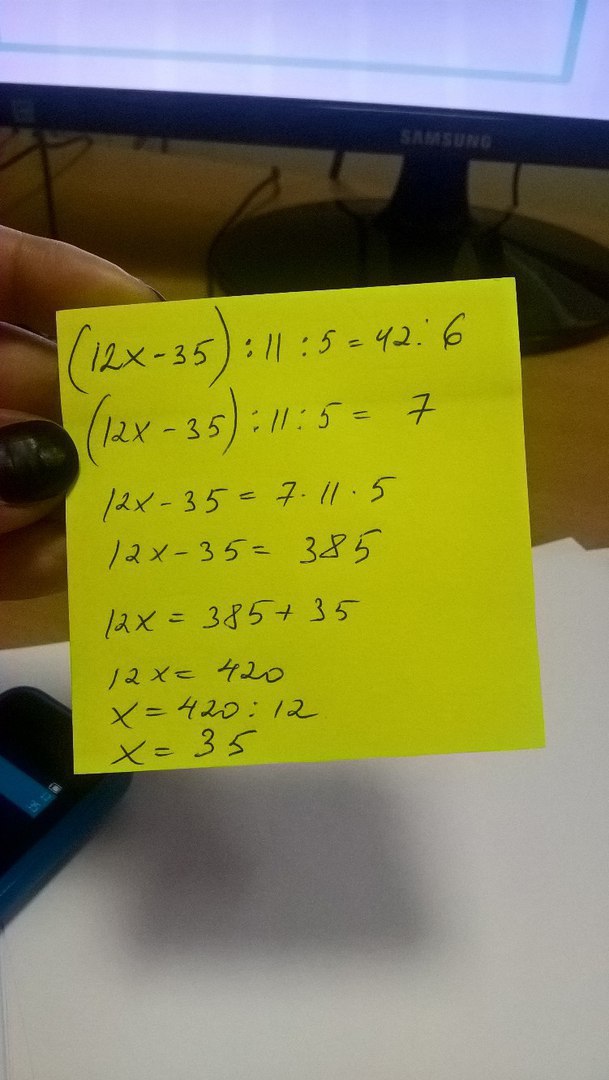 SAMSUNG
(12x-35):11:5=42:6
(12x-35):11:5= 7
12x-35= 7·11·5
12x-35= 385
12x = 385+35
12x= 420
x=420:12
x= 35